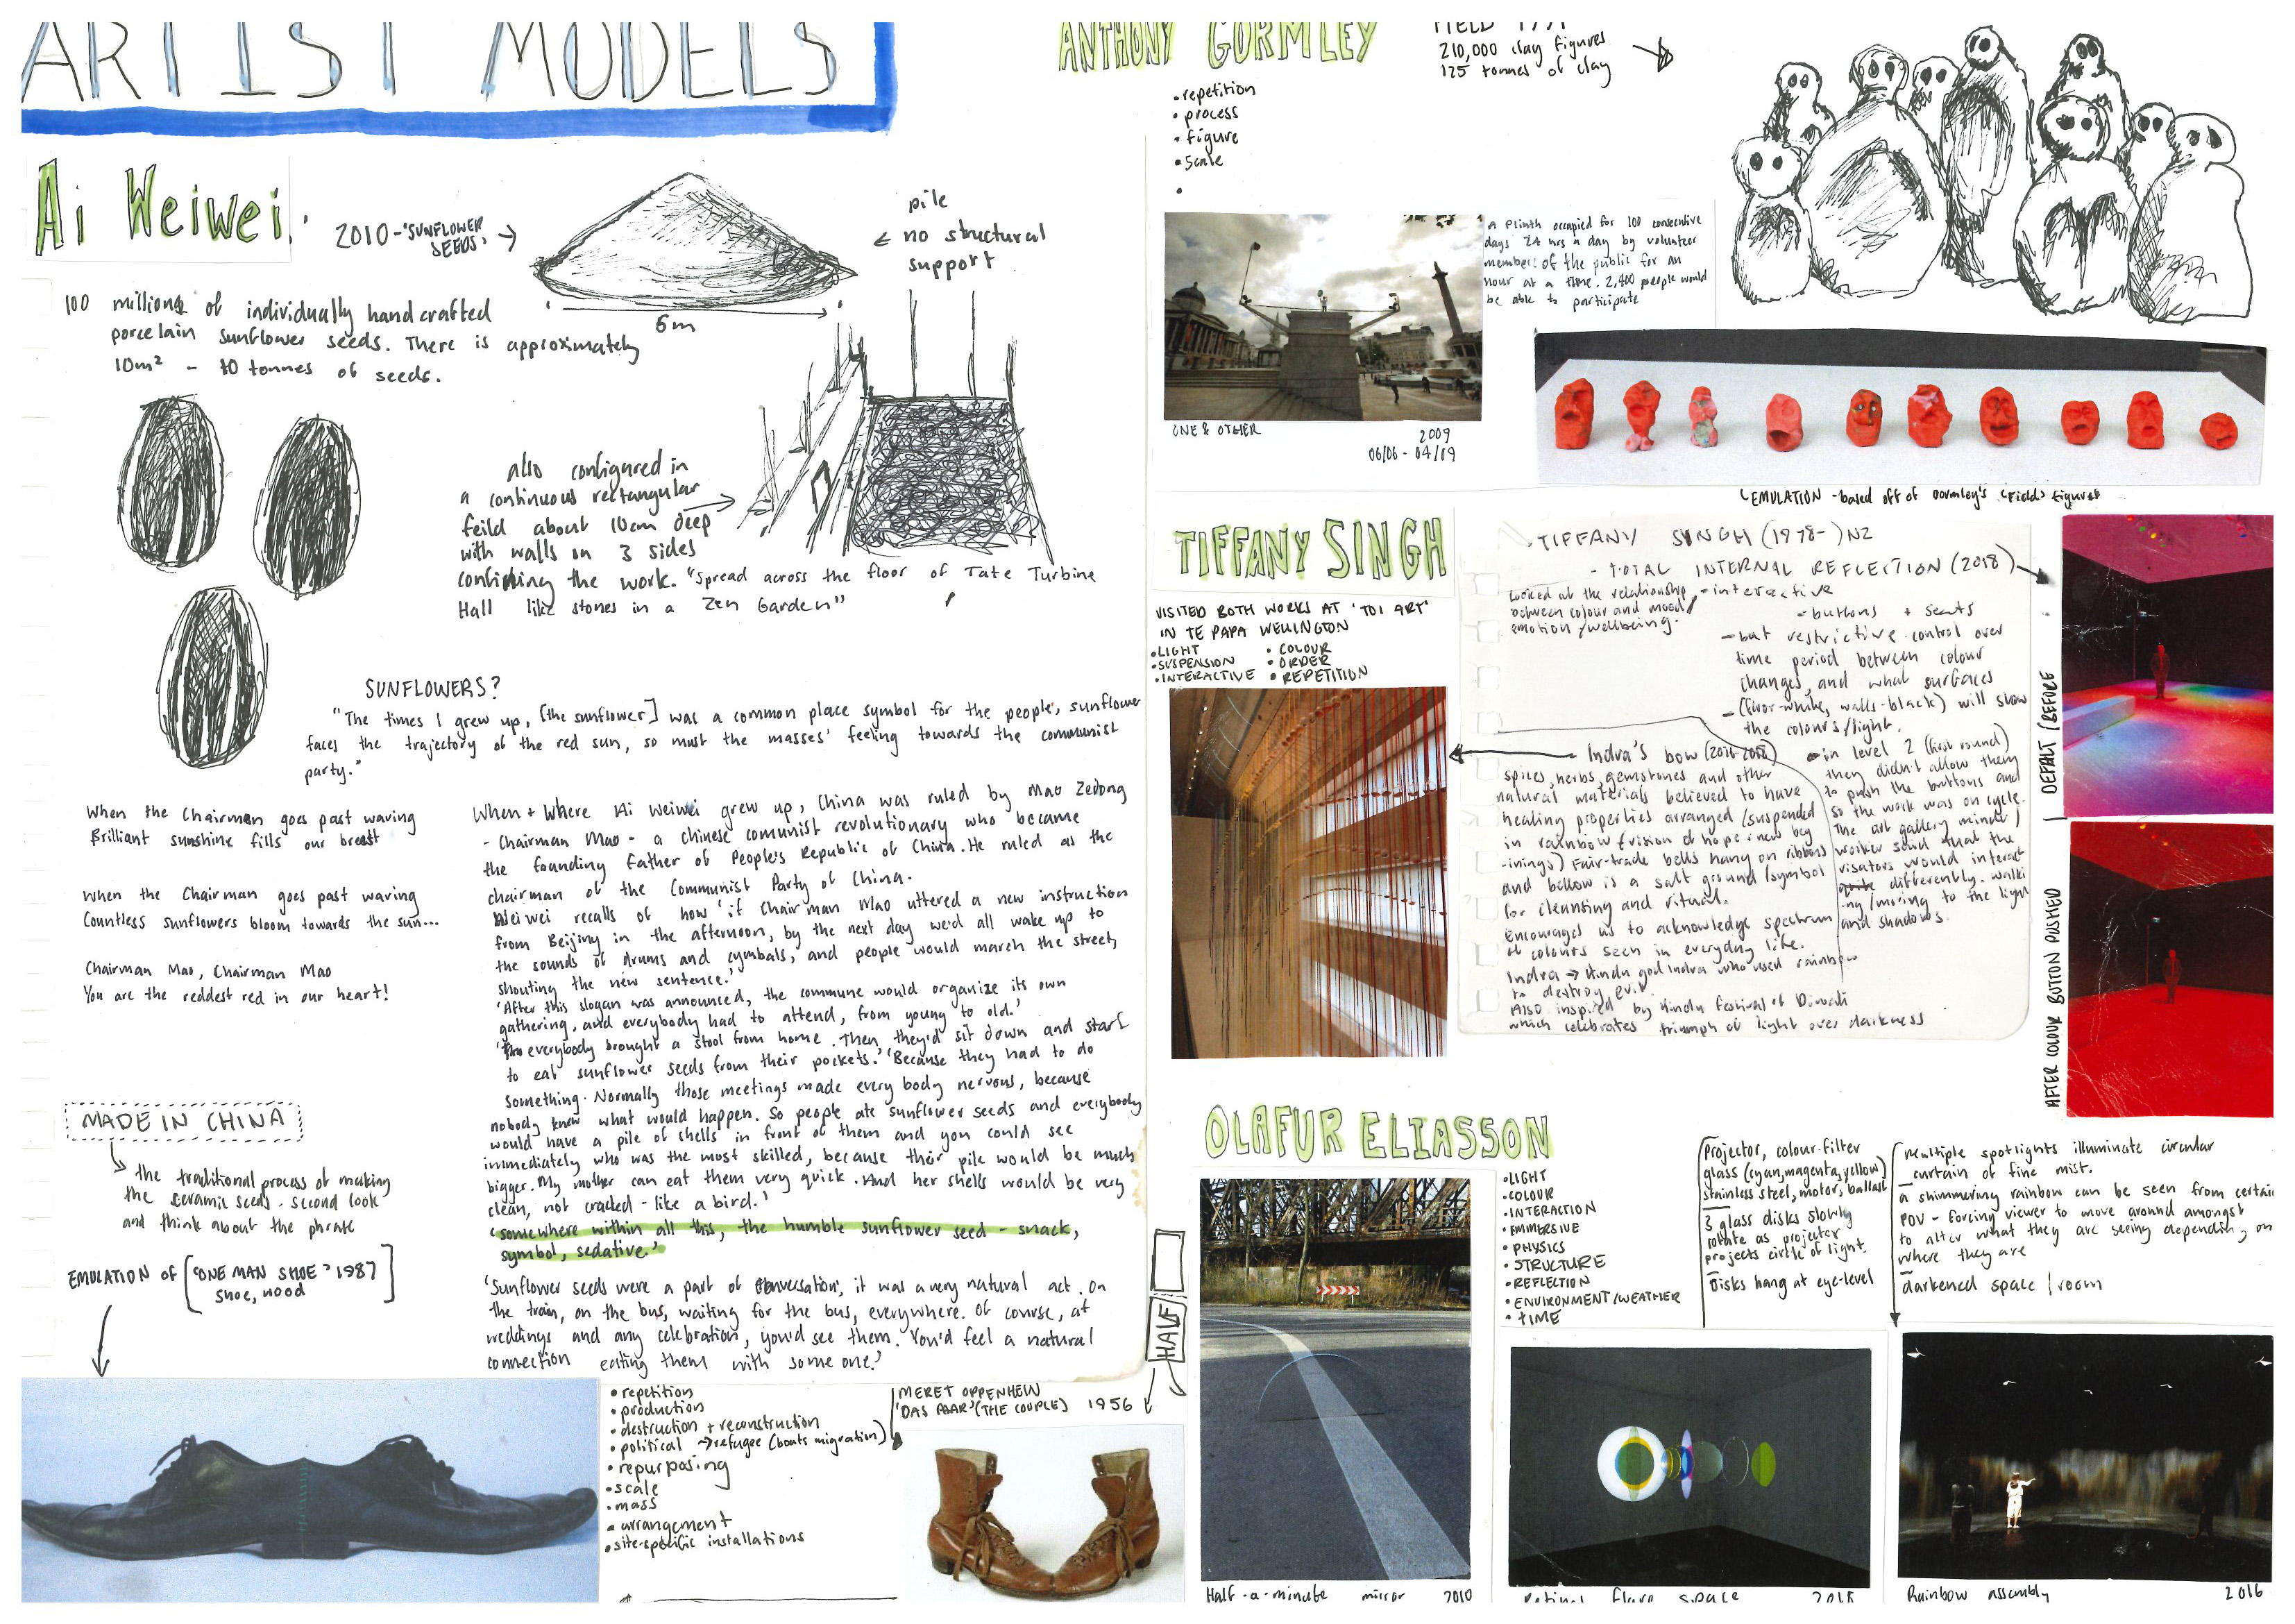 ARTIST MODELS
Ai Weiwei.
2010 - 'SUNFLOWER
SEEDS'
pile
no structural
support
5m
100 millions of individually handcrafted
porcelain sunflower seeds. There is approximately
10m² - 10 tonnes of seeds.
also configured in
a continuous rectangular
feild about 10cm deep
with walls on 3 sides
confining the work. "Spread across the floor of Tate Turbine
Hall like stones in a Zen Garden"
SUNFLOWERS?
"The times I grew up, [the sunflower] was a common place symbol for the people, sunflower
faces the trajectory of the red sun, so must the masses' feeling towards the communist
party."
When the Chairman goes past waving
Brilliant sunshine fills our breast
When the Chairman goes past waving
Countless sunflowers bloom towards the sun...
Chairman Mao, Chairman Mao
You are the reddest red in our heart!
When + Where Ai Weiwei grew up, China was ruled by Mao Zedong
- Chairman Mao - a chinese comunist revolutionary who became
the founding Father of People's Republic of China. He ruled as the
chairman of the Communist Party of China.
Weiwei recalls of how 'if Chairman Mao uttered a new instruction
from Beijing in the afternoon, by the next day we'd all wake up to
the sounds of drums and cymbals, and people would march the street,
shouting the new sentence.'
'After this slogan was announced, the commune would organize its own
gathering, and everybody had to attend, from young to old.'
everybody brought a stool from home. Then they'd sit down and start
to eat sunflower seeds from their pockets.' 'Because they had to do
something. Normally those meetings made every body nervous, because
nobody knew what would happen. So people ate sunflower seeds and everybody
would have a pile of shells in front of them and you could see
immediately who was the most skilled, because their pile would be much
bigger. My mother can eat them very quick. And her shells would be very
clean, not cracked - like a bird.'
'somewhere within all this, the humble sunflower seed - snack,
symbol, sedative.'
'Sunflower seeds were a part of conversation, it was a very natural act. On
the train, on the bus, waiting for the bus, everywhere. Of course, at
weddings and any celebration, you'd see them. You'd feel a natural
connection eating them with some one.'
MADE IN CHINA
the traditional process of making
the ceramic seeds - second look
and think about the phrase
EMULATION of ['ONE MAN SHOE' 1987
shoe, wood]
• repetition
• production
• destruction + reconstruction
• political → refugee (boats migration)
• repurposing
• scale
• mass
• arrangement
• site-specific installations
MERET OPPENHEIN
'DAS PAAR' (THE COUPLE) 1956
HALF
ANTHONY GORMLEY
• repetition
• process
• figure
• scale
•
FIELD 1991
210,000 clay figures
125 tonnes of clay
A Plinth occupied for 100 consecutive
days 24 hrs a day by volunteer
members of the public for an
hour at a time. 2,400 people would
be able to participate
ONE & OTHER
2009
06/06 - 04/09
EMULATION - based off of Gormley's 'Field' figures
TIFFANY SINGH
VISITED BOTH WORKS AT 'TOI ART'
IN TE PAPA WELLINGTON
• LIGHT • COLOUR
• SUSPENSION • ORDER
• INTERACTIVE • REPETITION
TIFFANY SINGH (1978- ) NZ
- TOTAL INTERNAL REFLECTION (2018)
Looked at the relationship
between colour and mood/
emotion/wellbeing.
- interactive
- buttons + seats
- but restrictive control over
time period between colour
changes, and what surfaces
- (floor-white, walls-black) will show
the colours/light.
Indra's bow (2016-2018)
spices, herbs, gemstones and other
natural materials believed to have
healing properties arranged (suspended
in rainbow (vision of hope + new beg
-innings) Fair-trade bells hang on ribbons
and bellow is a salt ground (symbol
for cleansing and ritual.
Encourages us to acknowledge spectrum
of colours seen in everyday life.
Indra → Hindu god Indra who used rainbow
to destroy evil.
Also inspired by Hindu festival of Diwali
which celebrates triumph of light over darkness
in level 2 (first round)
they didn't allow them
to push the buttons and
so the work was on cycle.
The art gallery minder/
worker said that the
visators would interact
differently. walki
-ng/moving to the light
and shadows.
DEFALT / BEFORE
AFTER COLOUR BUTTON PUSHED
OLAFUR ELIASSON
• LIGHT
• COLOUR
• INTERACTION
• IMMERSIVE
• PHYSICS
• STRUCTURE
• REFLECTION
• ENVIRONMENT/WEATHER
• TIME
Projector, colour-filter
glass (cyan, magenta, yellow)
stainless steel, motor, ballast
3 glass disks slowly
rotate as projector
projects circle of light.
Disks hang at eye-level
Multiple spotlights illuminate circular
curtain of fine mist.
a shimmering rainbow can be seen from certain
POV - forcing viewer to move around amongst
to alter what they are seeing depending on
where they are
darkened space / room
Half-a-minute mirror 2010
Retinal flare space 2018
Rainbow assembly 2016